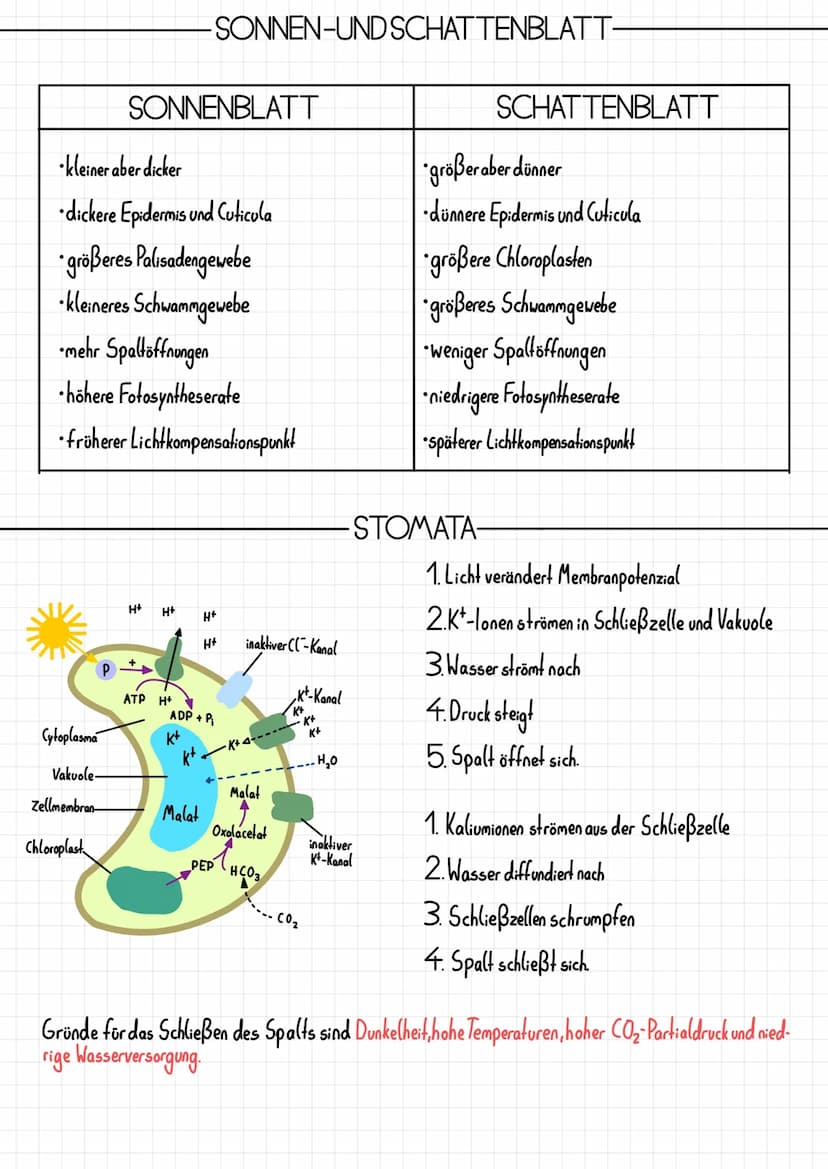 SONNEN-UND SCHATTENBLATT
SONNENBLATT
SCHATTENBLATT
·kleiner aber dicker
·dickere Epidermis und Cuticula
·größeres Palisadengewebe
·kleineres Schwammgewebe
·mehr Spaltöffnungen
·höhere Fotosyntheserate
·früherer Lichtkompensationspunkt
·größer aber dünner
·dünnere Epidermis und Cuticula
·größere Chloroplasten
·größeres Schwammgewebe
·weniger Spaltöffnungen
·niedrigere Fotosyntheserate
·späterer Lichtkompensationspunkt
STOMATA
H+ H+ H+
H+
inaktiver Cl⁻-Kanal
P
+
ATP H+
ADP + Pi
K+-Kanal
K+
K+
K+
K+
K+
K+
Cytoplasma
H₂O
Vakuole
Malat
Zellmembran
Malat
Oxalacetat
Chloroplast
inaktiver
K+-Kanal
PEP
HCO₃
CO₂
1. Licht verändert Membranpotenzial
2. K+-Ionen strömen in Schließzelle und Vakuole
3. Wasser strömt nach
4. Druck steigt
5. Spalt öffnet sich.
1. Kaliumionen strömen aus der Schließzelle
2. Wasser diffundiert nach
3. Schließzellen schrumpfen
4. Spalt schließt sich.
Gründe für das Schließen des Spalts sind Dunkelheit, hohe Temperaturen, hoher CO₂-Partialdruck und nied-
rige Wasserversorgung.